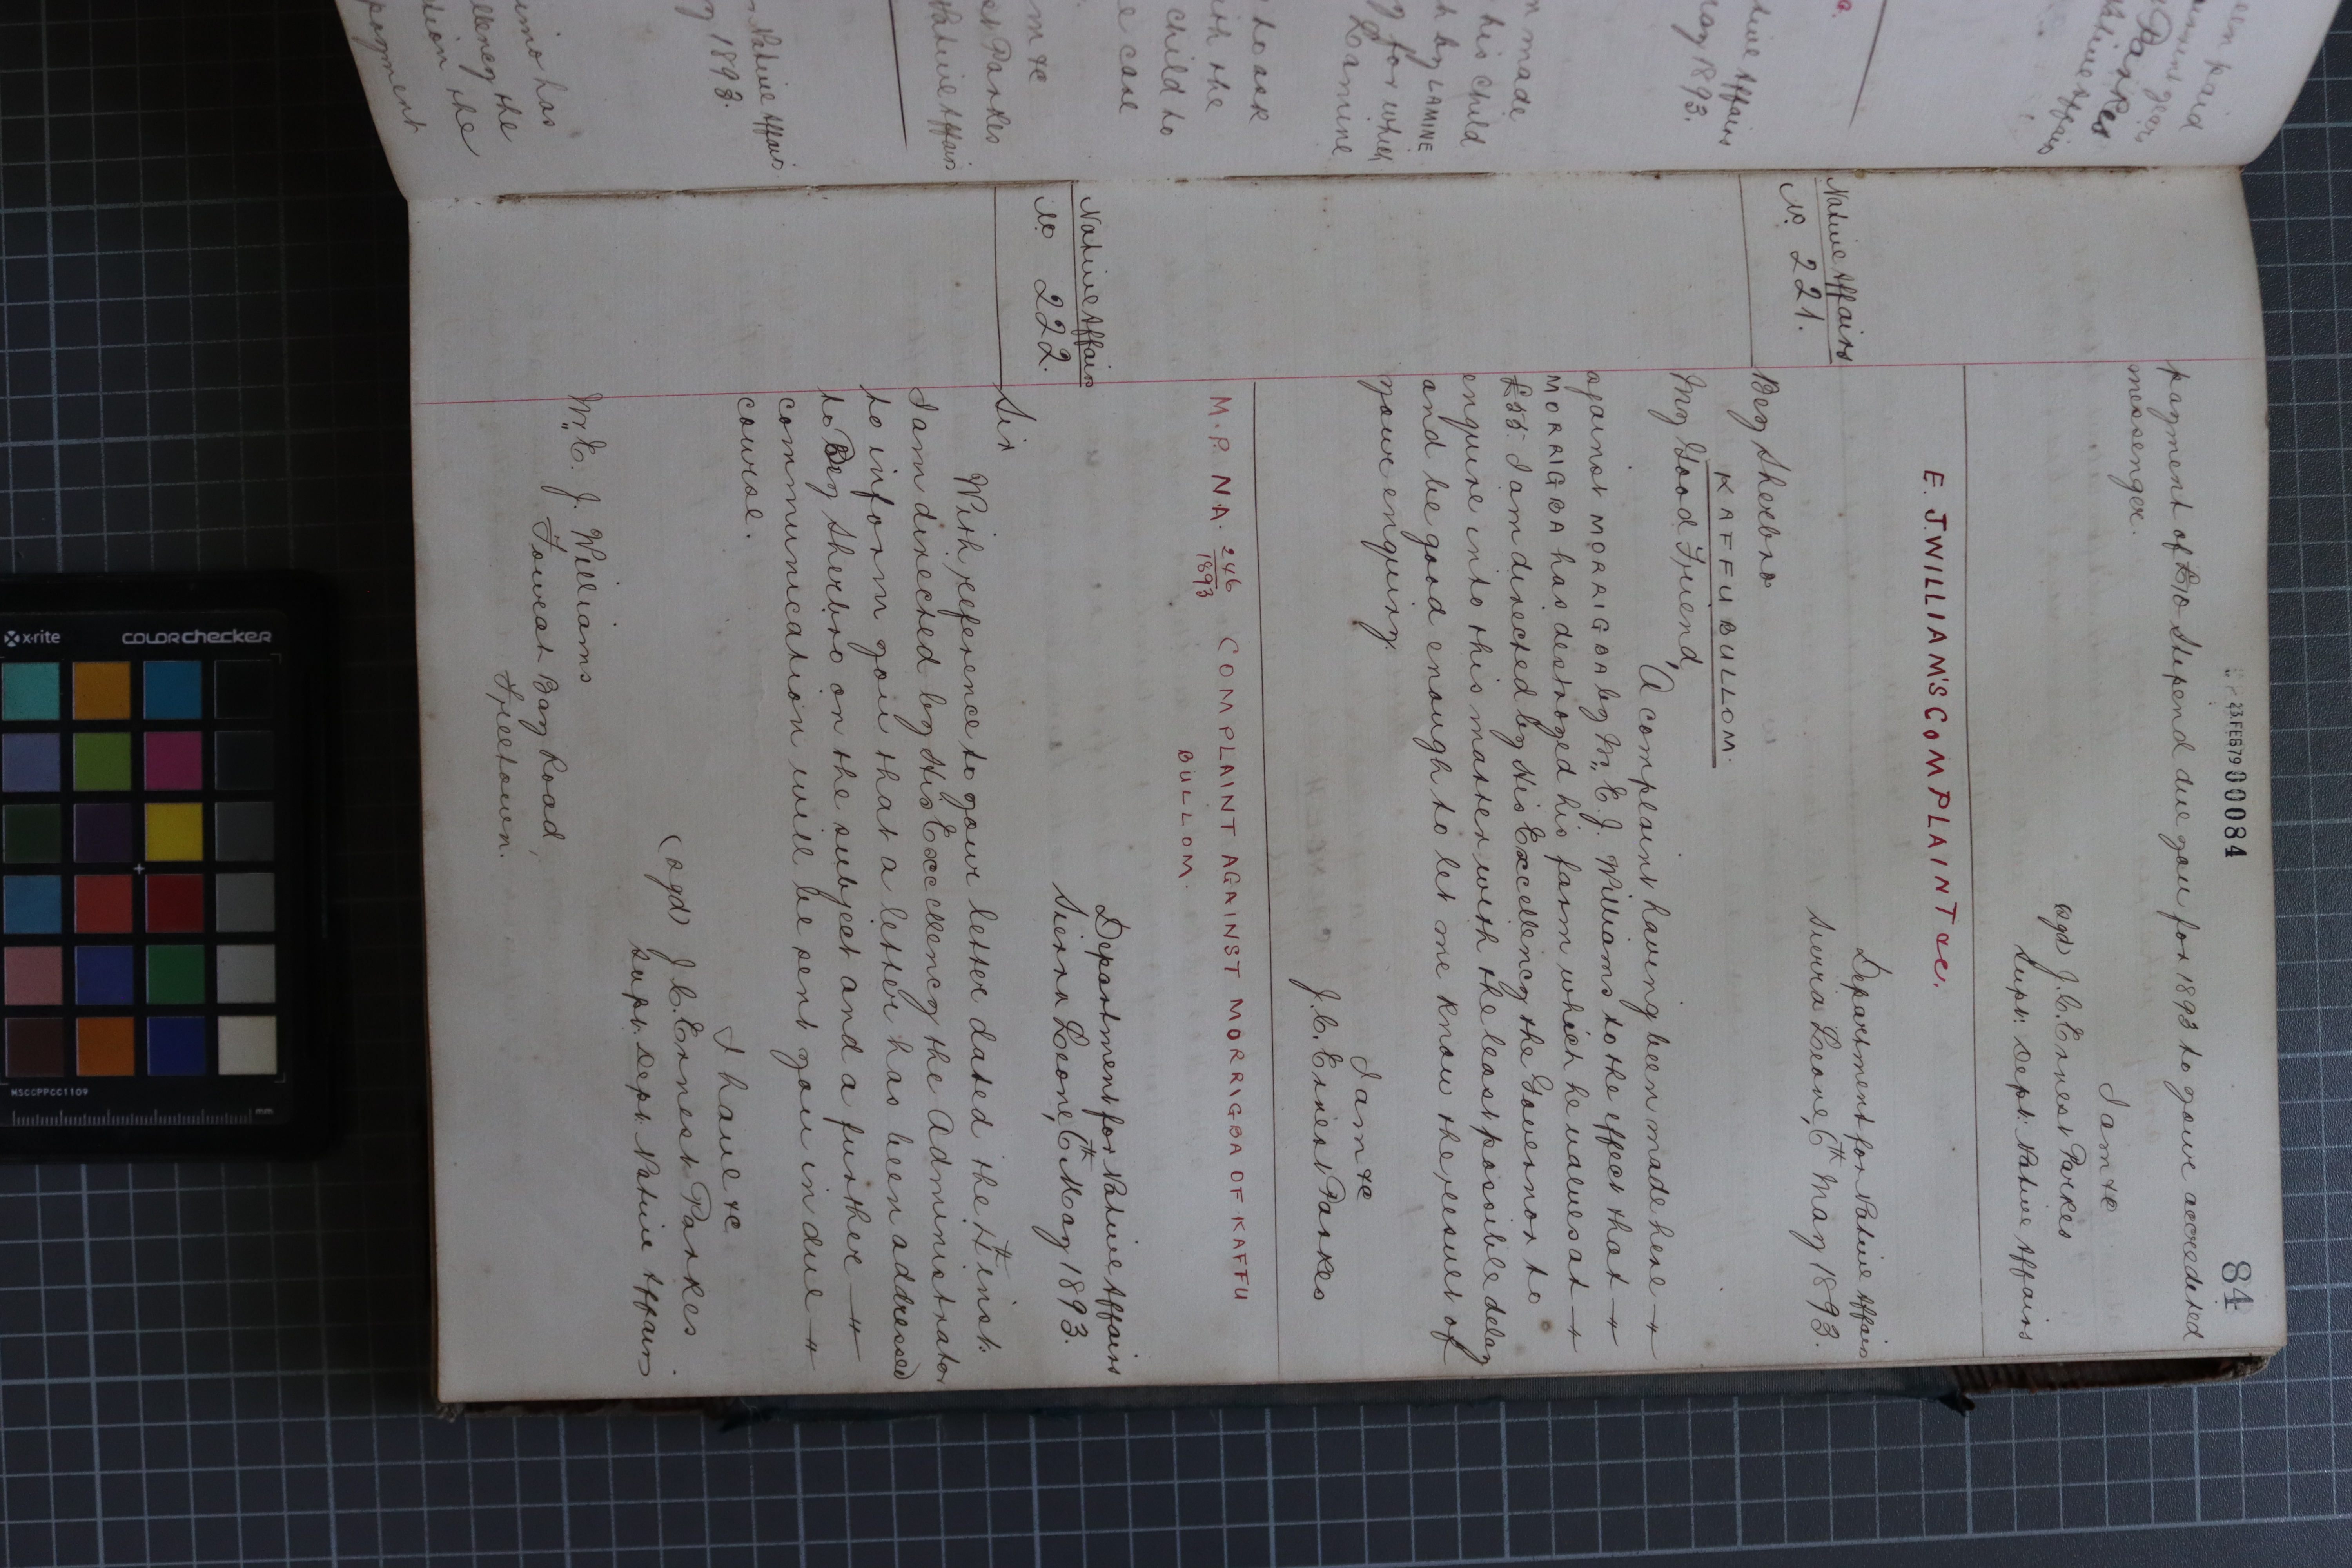 84
23 FEB 79 00084
payment of £10 Stipend due you for 1893 to your accredited
messenger.
I am &c
sgd J. C. Ernest Parkes
Supt. Dept. Native Affairs
E. J. WILLIAM'S COMPLAINT &c.
Native Affairs
No. 221.
Department for Native Affairs
Sierra Leone, 6th May 1893.
Bey Sherbro
KAFFU BULLOM.
My Good Friend,
A complaint having been made here
against MORRIGBA by Mr. E. J. Williams to the effect that
MORRIGBA has destroyed his farm which he values at
£55. I am directed by His Excellency the Governor to
enquire into this matter with the least possible delay
and be good enough to let me know the result of
your enquiry.
I am &c
J. C. Ernest Parkes
M. P. N.A. 246/1893 COMPLAINT AGAINST MORRIGBA OF KAFFU
BULLOM.
Native Affairs
No 222.
Department for Native Affairs
Sierra Leone, 6th May 1893.
Sir
With reference to your letter dated the inst.
I am directed by His Excellency the Administrator
to inform you that a letter has been addressed
to Bey Sherbro on the subject and a further
communication will be sent you in due
course.
I have &c
(sgd) J. C. Ernest Parkes.
Supt. Dept. Native Affairs
Mr. E. J. Williams
Fourah Bay Road,
Freetown.
een paid
Parkes
Native Affairs
ative Affairs
ay 1893.
n made
his child
h by LAMINE
g for which
Lamine
to ask
ith the
child to
e case
m &c
st Parkes
Native Affairs
Native Affairs
y 1893.
imo has
llency the
tion the
payment
x-rite
colorchecker
MSCCPPCC1109
mm